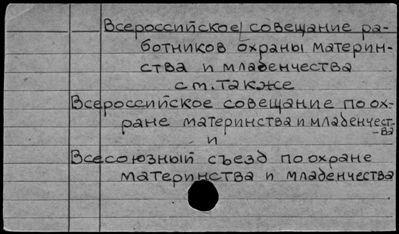 Всероссийское совещание ра-
ботников охраны материн-
ства и младенчества
см. также
Всероссийское совещание по ох-
ране материнства и младенчест-
ва
и
Всесоюзный съезд по охране
материнства и младенчества